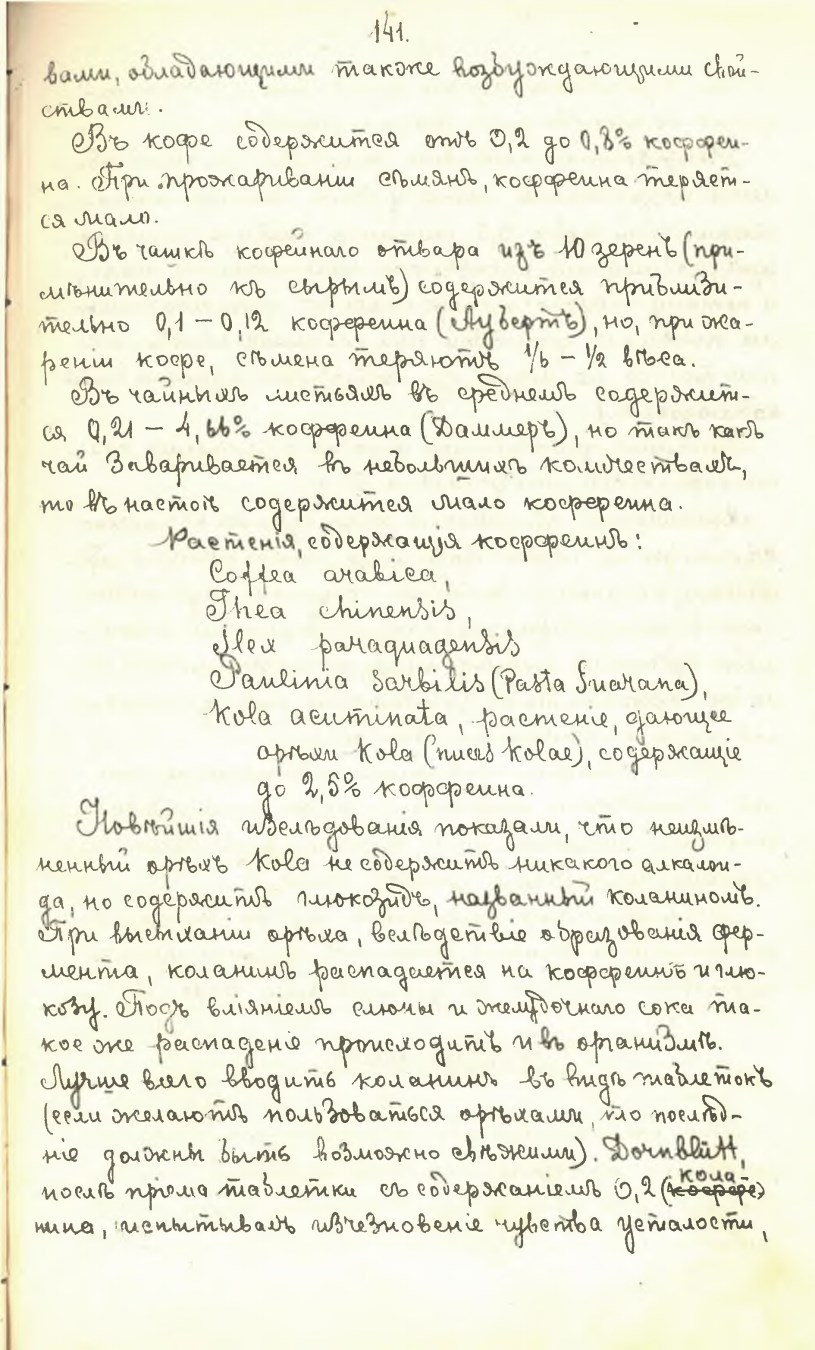 141.
вами, обладающими также возбуждающими свой-
ствами.
Въ кофе содержится отъ 0,2 до 0,8% коффеи-
на. При прожариваніи сѣмянъ, коффеина теряет-
ся мало.
Въ чашкѣ кофейнаго отвара изъ 10 зеренъ (при-
мѣнительно къ сырымъ) содержится приблизи-
тельно 0,1 – 0,12 коффеина (Аубертъ), но, при жа-
реніи кофе, сѣмена теряютъ 1/6 – 1/2 вѣса.
Въ чайныхъ листьяхъ въ среднемъ содержит-
ся 0,21 – 4,66% коффеина (Даммеръ), но такъ какъ
чай заваривается въ небольшихъ количествахъ,
то въ настоѣ содержится мало коффеина.
Растенія, содержащія коффеинъ:
Coffea arabica,
Thea chinensis,
Ilex paraquagensis
Paulinia sorbilis (Pasta Guarana),
Kola acuminata, растеніе, дающее
орѣхи Kola (nuces Kolae), содержащіе
до 2,5% коффеина.
Новѣйшія изслѣдованія показали, что неизмѣ-
ненный орѣхъ Kola не содержитъ никакого алкалои-
да, но содержитъ глюкозидъ, названный коланиномъ.
При высыханіи орѣха, вслѣдствіе образованія фер-
мента, коланинъ распадается на коффеинъ и глю-
козу. Подъ вліяніемъ слюны и желудочнаго сока та-
кое же распаденіе происходитъ и въ организмѣ.
Лучше всего вводить коланинъ въ видѣ таблетокъ
(если желаютъ пользоваться орѣхами, то послѣд-
ніе должны быть возможно свѣжими). Dornblütt,
послѣ пріема таблетки съ содержаніемъ 0,2 (кола
нина, испытывалъ изчезновеніе чувства усталости,